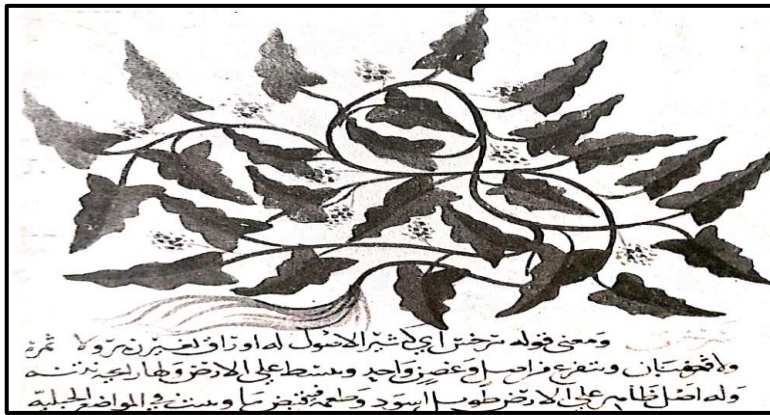 ومعنى قوله ترخس اي كثير الاصول له اوراق لغير زهر ولا ثمرة
ولا وتتفرع من اصل وغصن واحد وينبسط على الارض ولها رايحة نتنه
وله اصل ظاهر على الارض طويل اسود وطعمه فيه قبض ما وينبت في المواضع الجبلية